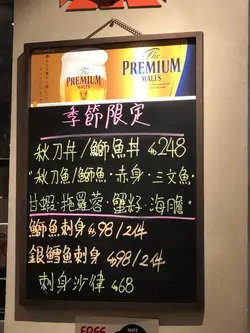 The
PREMIUM
MALTS
The
PREMIUM
MALTS
季節限定
秋刀丼/鰤魚丼 $248
"秋刀魚/鰤魚·赤身·三文魚
甘蝦·拖羅蓉·蟹籽·海膽"
鰤魚刺身 $98/214
銀鱈魚刺身 $98/214
刺身沙律 $68
FREE
HOT